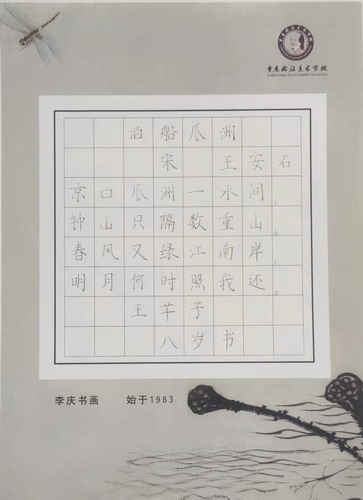 泊船瓜洲
宋 王安石
京口瓜洲一水间，
钟山只隔数重山。
春风又绿江南岸，
明月何时照我还。
王芊予
八岁书
李庆书画 始于1983